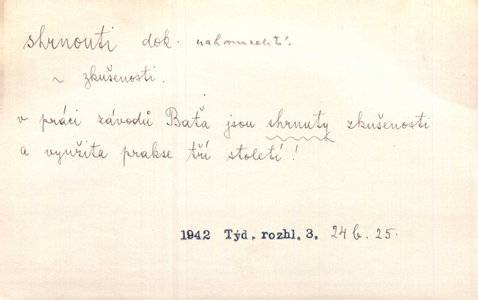 shrnouti dok. nahromaditi.
~ zkušenosti.
v práci závodů Baťa jsou shrnuty zkušenosti
a využita prakse tří století!
1942 Týd. rozhl. 3. 24b. 25.